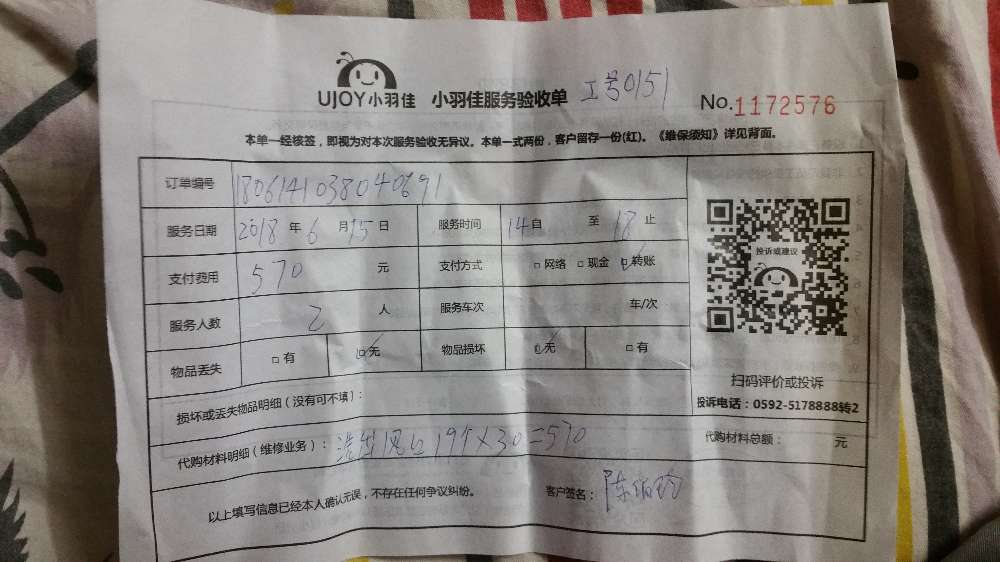 UJOY小羽佳 小羽佳服务验收单 工号0151 No.1172576
本单一经核签，即视为对本次服务验收无异议。本单一式两份，客户留存一份(红)。《维保须知》详见背面。
订单编号 1806141038040691
服务日期 2018 年 6 月 15 日 服务时间 14 自 至 18 止
支付费用 570 元 支付方式 □网络 □现金 □转账
服务人数 2 人 服务车次 车/次
物品丢失 □有 □无 物品损坏 □无 □有
投诉或建议
扫码评价或投诉
投诉电话：0592-5178888转2
损坏或丢失物品明细（没有可不填）：
代购材料明细（维修业务）： 风口19个×30=570 代购材料总额： 元
以上填写信息已经本人确认无误，不存在任何争议纠纷。 客户签名： 陈